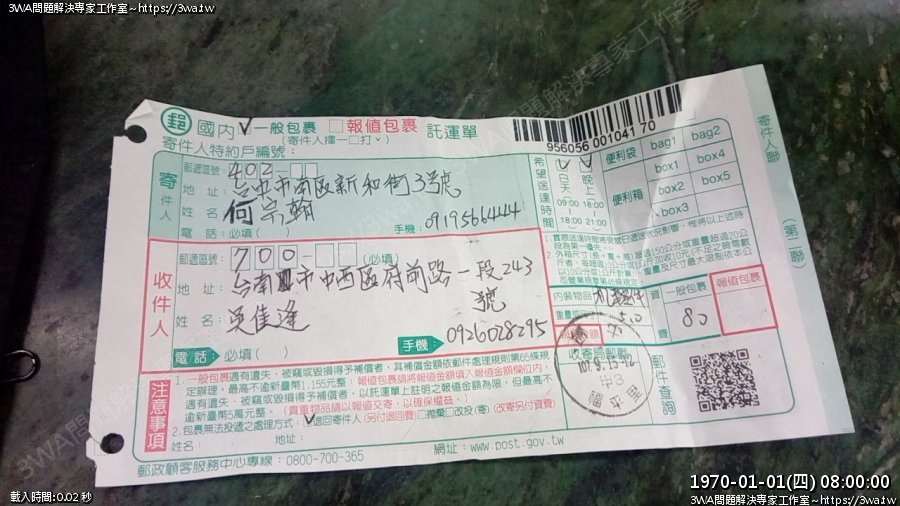 3WA問題解決專家工作室~https://3wa.tw
國內 ✓一般包裹 □報值包裹 託運單
(寄件人擇一□打✓)
956056 001041 70
寄件人特約戶編號:
寄件人
郵遞區號: 402
地址: 台中市南區新和街3號
姓名: 何宗翰
電話: 必填( ) 手機: 0919566444
收件人
郵遞區號: 700 (必填)
地址: 台南市中西區府前路一段243號
姓名: 吳佳逢
電話: 必填( ) 手機: 0926028295
希望送達時間
白天 晚上
09:00 18:00
18:00 21:00
便利袋 bag1 bag2
便利箱 box1 box4
box2 box5
box3
寄件人聯
(第二聯)
內裝物品
一般包裹 報值包裹
資費 80
收寄局郵戳
郵件查詢
注意事項
1.一般包裹遇有遺失、被竊或毀損得予補償者,其補償金額依郵件處理規則第65條規
定辦理,最高不逾新臺幣1,155元整。報值包裹請將報值金額填入報值金額欄位內,
遇有遺失、被竊或毀損得予補償者,以託運單上註明之報值金額為限,但最高不
逾新臺幣5萬元整。(貴重物品請以報值交寄,以確保權益。)
2.包裹無法投遞之處理方式: ✓退回寄件人(另付退回費) □拋棄 □改投(寄) (改寄另付資費)
姓名: 地址:
郵政顧客服務中心專線:0800-700-365 網址:www.post.gov.tw
載入時間:0.02 秒
1970-01-01(四) 08:00:00
3WA問題解決專家工作室~https://3wa.tw